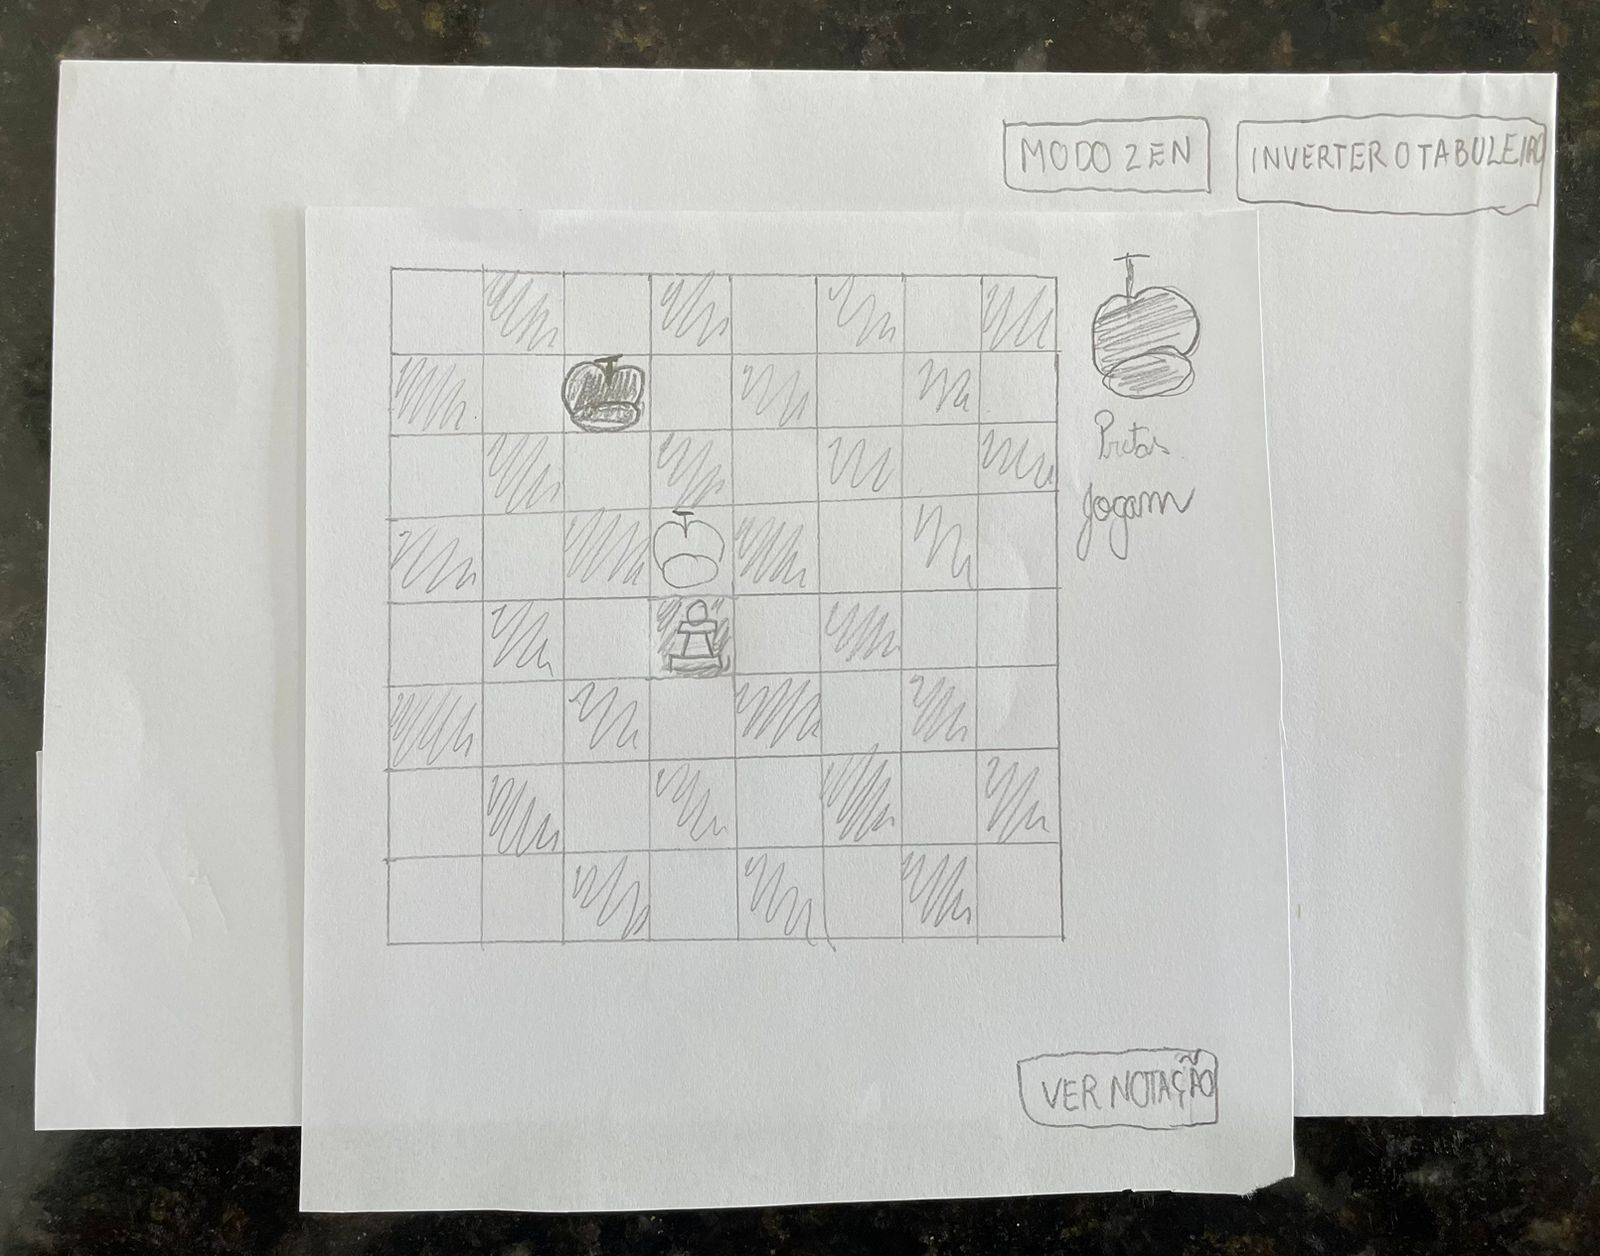 MODO ZEN
INVERTER O TABULEIRO
Pretas
Jogam
VER NOTAÇÃO